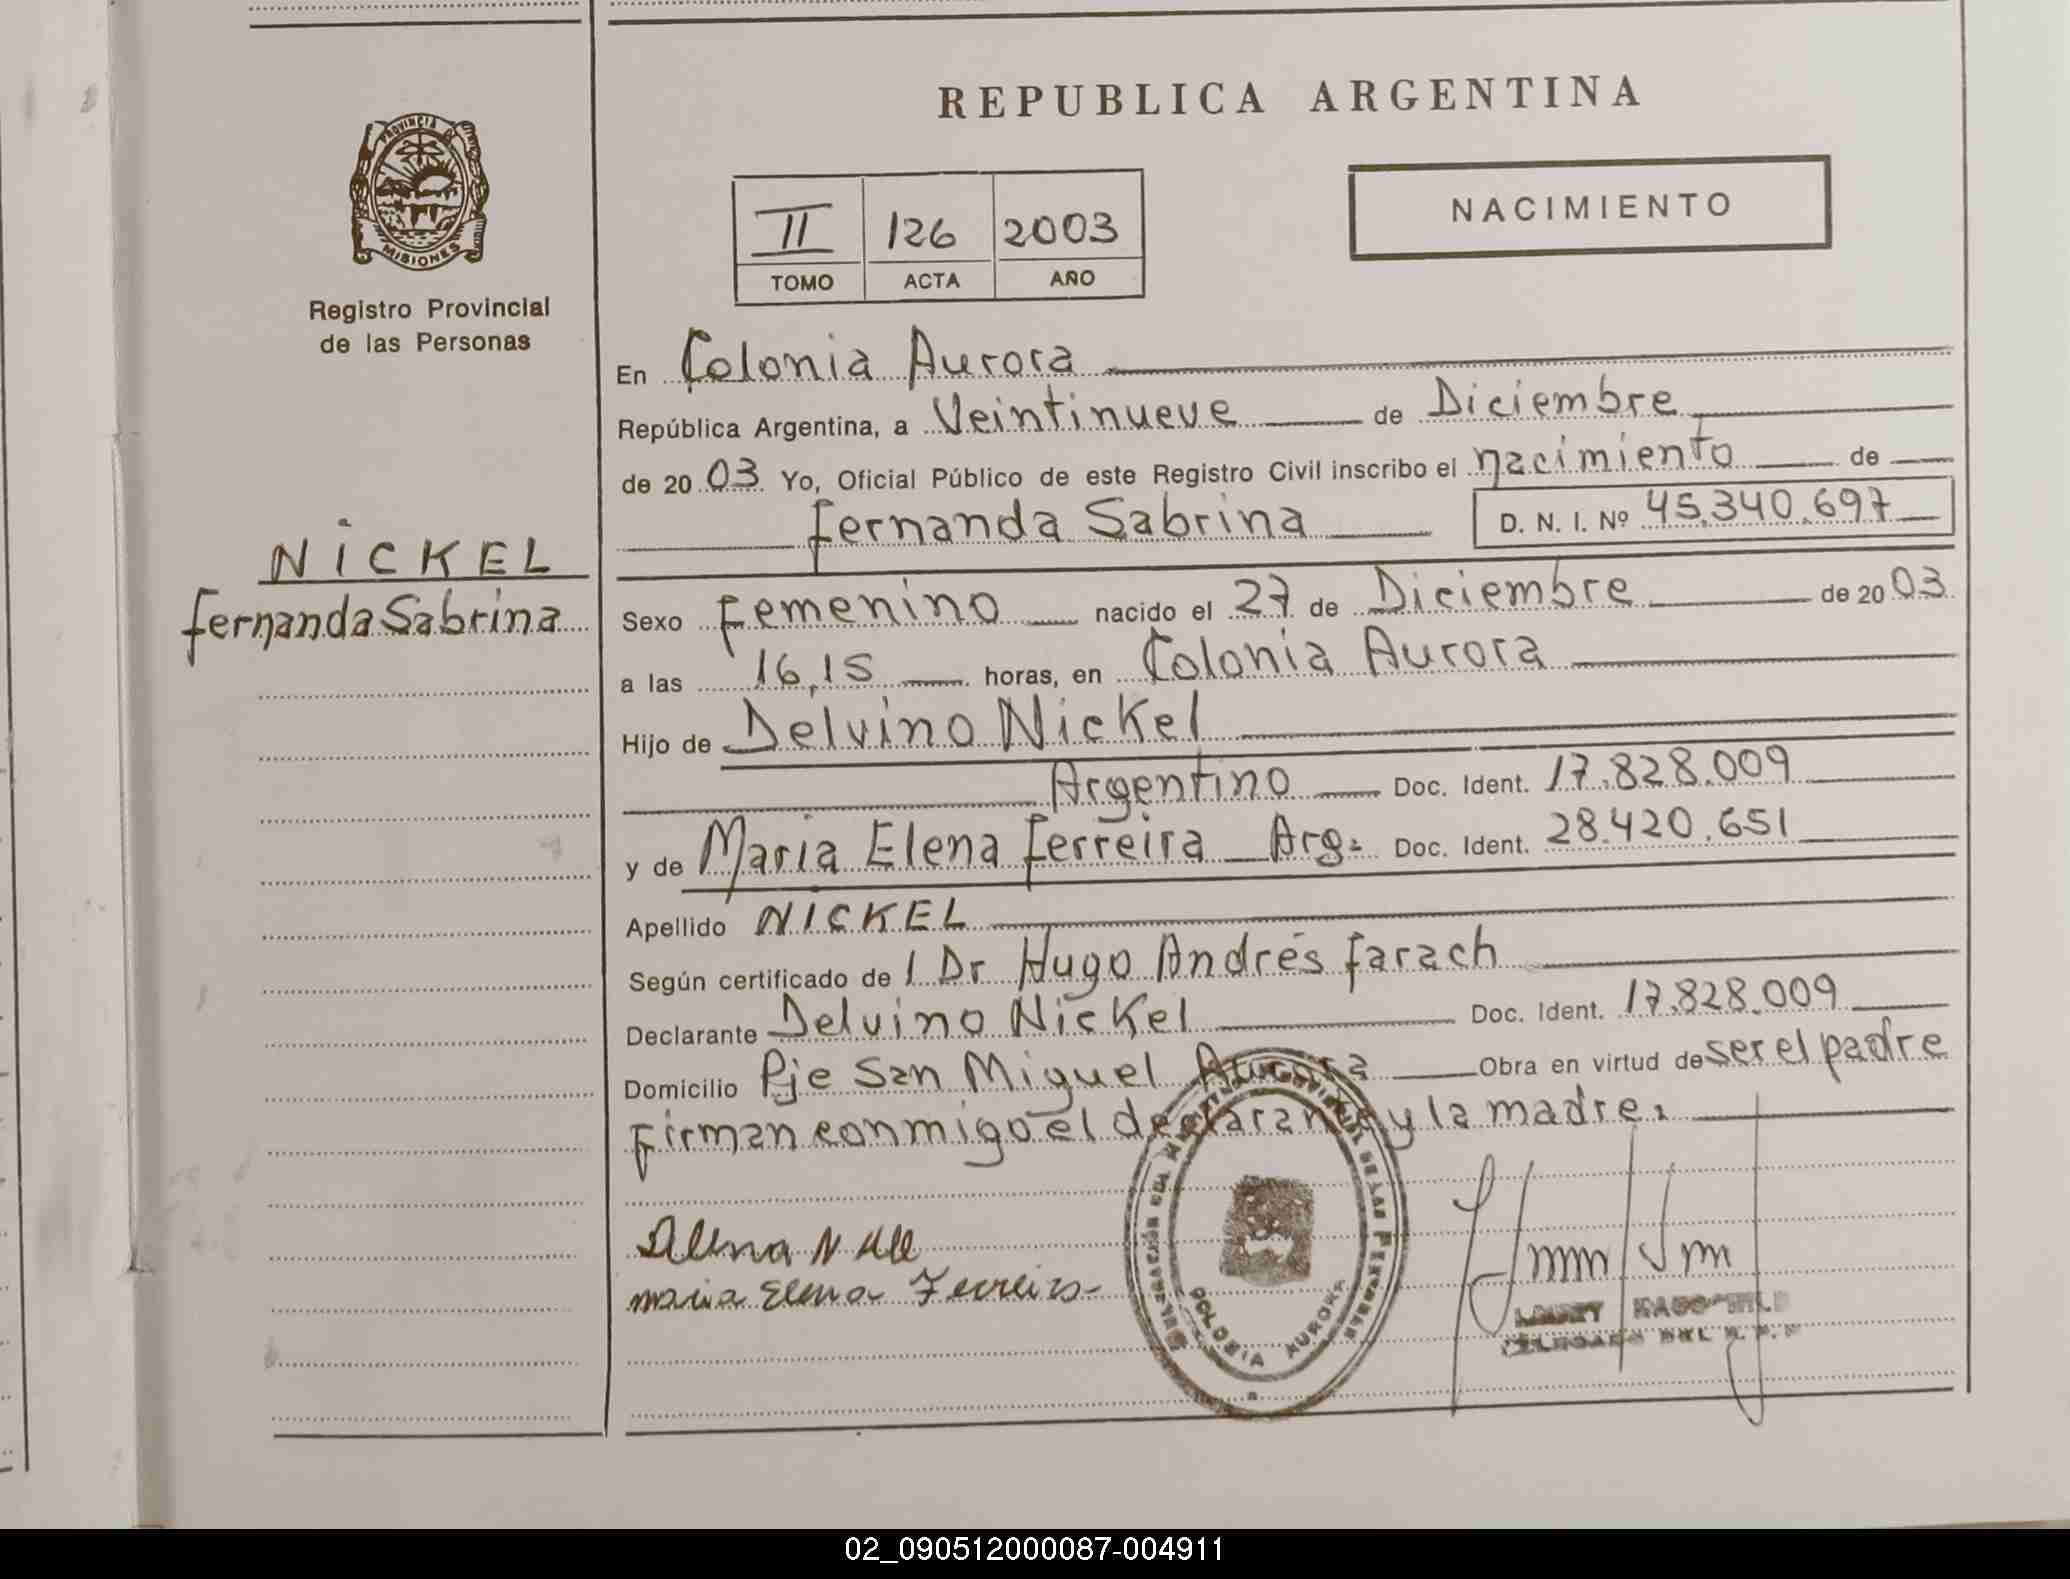 REPUBLICA ARGENTINA
PROVINCIA DE
MISIONES
Registro Provincial
de las Personas
II 126 2003
TOMO ACTA AÑO
NACIMIENTO
NICKEL
Fernanda Sabrina
En Colonia Aurora
República Argentina, a Veintinueve de Diciembre
de 2003 Yo, Oficial Público de este Registro Civil inscribo el nacimiento de
Fernanda Sabrina D. N. I. Nº 45.340.697
Sexo Femenino nacido el 27 de Diciembre de 2003
a las 16,15 horas, en Colonia Aurora
Hijo de Delvino Nickel
Argentino Doc. Ident. 17.828.009
y de Maria Elena Ferreira Arg. Doc. Ident. 28.420.651
Apellido NICKEL
Según certificado de l Dr Hugo Andrés Farach
Declarante Delvino Nickel Doc. Ident. 17.828.009
Domicilio Pje San Miguel Aurora Obra en virtud de ser el padre
Firman conmigo el declarante y la madre.
maria Elena Ferreira
COLONIA AURORA
02_090512000087-004911